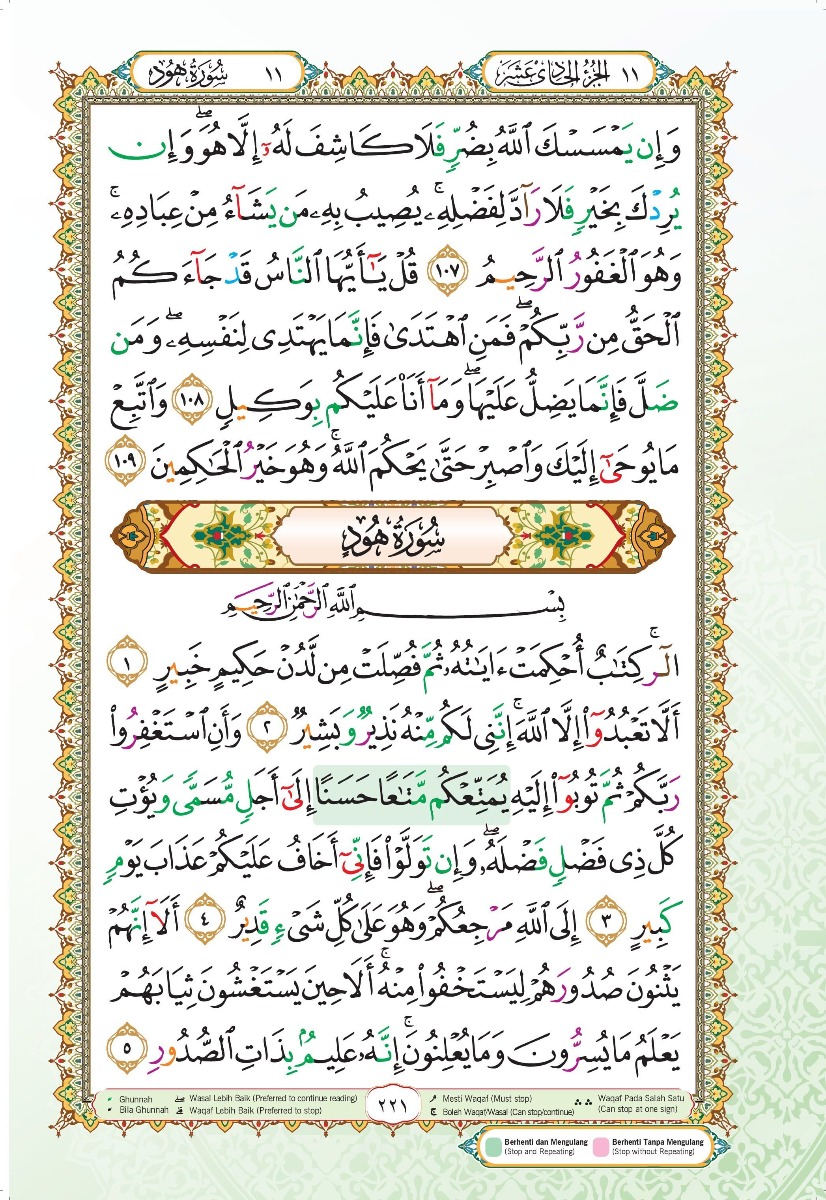 سُورَةُ هُود ١١ الجُزْءُ الحَادِى عَشَرَ ١١
وَإِن يَمْسَسْكَ ٱللَّهُ بِضُرٍّ فَلَا كَاشِفَ لَهُۥٓ إِلَّا هُوَۖ وَإِن
يُرِدْكَ بِخَيْرٍ فَلَا رَآدَّ لِفَضْلِهِۦۚ يُصِيبُ بِهِۦ مَن يَشَآءُ مِنْ عِبَادِهِۦۚ
وَهُوَ ٱلْغَفُورُ ٱلرَّحِيمُ ١٠٧ قُلْ يَـٰٓأَيُّهَا ٱلنَّاسُ قَدْ جَآءَكُمُ
ٱلْحَقُّ مِن رَّبِّكُمْۖ فَمَنِ ٱهْتَدَىٰ فَإِنَّمَا يَهْتَدِى لِنَفْسِهِۦۖ وَمَن
ضَلَّ فَإِنَّمَا يَضِلُّ عَلَيْهَاۖ وَمَآ أَنَا۠ عَلَيْكُم بِوَكِيلٍ ١٠٨ وَٱتَّبِعْ
مَا يُوحَىٰٓ إِلَيْكَ وَٱصْبِرْ حَتَّىٰ يَحْكُمَ ٱللَّهُۚ وَهُوَ خَيْرُ ٱلْحَـٰكِمِينَ ١٠٩
سُورَةُ هُودٍ
بِسْمِ ٱللَّهِ ٱلرَّحْمَـٰنِ ٱلرَّحِيمِ
الٓرۚ كِتَـٰبٌ أُحْكِمَتْ ءَايَـٰتُهُۥ ثُمَّ فُصِّلَتْ مِن لَّدُنْ حَكِيمٍ خَبِيرٍ ١
أَلَّا تَعْبُدُوٓا۟ إِلَّا ٱللَّهَۚ إِنَّنِى لَكُم مِّنْهُ نَذِيرٌ وَبَشِيرٌ ٢ وَأَنِ ٱسْتَغْفِرُوا۟
رَبَّكُمْ ثُمَّ تُوبُوٓا۟ إِلَيْهِ يُمَتِّعْكُم مَّتَـٰعًا حَسَنًا إِلَىٰٓ أَجَلٍ مُّسَمًّى وَيُؤْتِ
كُلَّ ذِى فَضْلٍ فَضْلَهُۥۖ وَإِن تَوَلَّوْا۟ فَإِنِّىٓ أَخَافُ عَلَيْكُمْ عَذَابَ يَوْمٍ
كَبِيرٍ ٣ إِلَى ٱللَّهِ مَرْجِعُكُمْۖ وَهُوَ عَلَىٰ كُلِّ شَىْءٍ قَدِيرٌ ٤ أَلَآ إِنَّهُمْ
يَثْنُونَ صُدُورَهُمْ لِيَسْتَخْفُوا۟ مِنْهُۚ أَلَا حِينَ يَسْتَغْشُونَ ثِيَابَهُمْ
يَعْلَمُ مَا يُسِرُّونَ وَمَا يُعْلِنُونَۚ إِنَّهُۥ عَلِيمٌۢ بِذَاتِ ٱلصُّدُورِ ٥
Ghunnah صلى Wasal Lebih Baik (Preferred to continue reading) م Mesti Waqaf (Must stop) Waqaf Pada Salah Satu
Bila Ghunnah قلى Waqaf Lebih Baik (Preferred to stop) ج Boleh Waqaf/Wasal (Can stop/continue) (Can stop at one sign)
٢٢١
Berhenti dan Mengulang Berhenti Tanpa Mengulang
(Stop and Repeating) (Stop without Repeating)